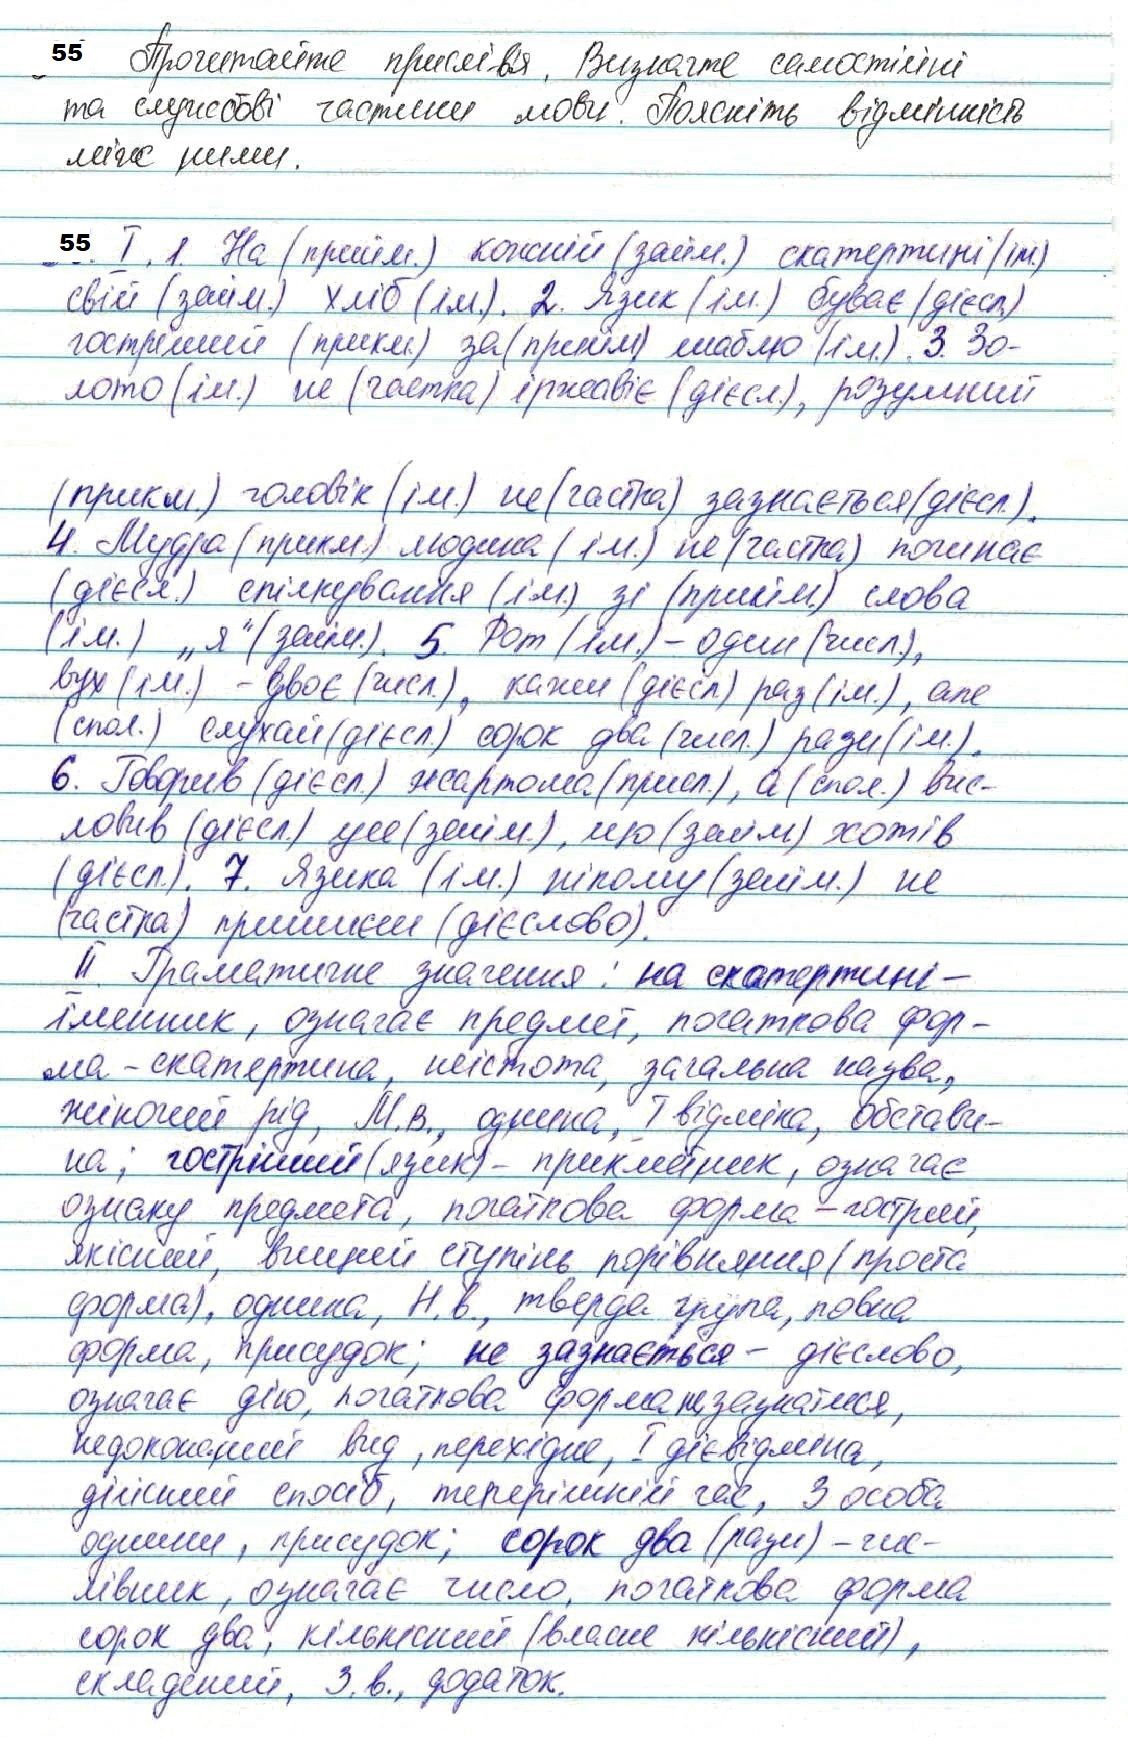 55 Прочитайте прислів'я. Визначте самостійні
та службові частини мови. Поясніть відмінність
між ними.
55 І. 1. На (прийм.) кожній (займ.) скатертині (ім.)
свій (займ.) хліб (ім.). 2. Язик (ім.) буває (дієсл.)
гостріший (прикм.) за (прийм) шаблю (ім.). 3. Зо-
лото (ім.) не (частка) іржавіє (дієсл.), розумний
(прикм.) чоловік (ім.) не (частка) зазнається (дієсл.).
4. Мудра (прикм.) людина (ім.) не (частка) починає
(дієсл.) спілкування (ім.) зі (прийм.) слова
(ім.) „я“ (займ.). 5. Рот (ім.) – один (числ.),
вух (ім.) – двоє (числ.), кажи (дієсл) раз (ім.), але
(спол.) слухай (дієсл.) сорок два (числ.) рази (ім.).
6. Говорив (дієсл.) жартома (присл.), а (спол.) вис-
ловив (дієсл.) усе (займ.), що (займ) хотів
(дієсл.). 7. Язика (ім.) нікому (займ.) не
(частка) пришиєш (дієслово).
ІІ. Граматичне значення: на скатертині –
іменник, означає предмет, початкова фор-
ма – скатертина, неістота, загальна назва,
жіночий рід, М.в., однина, І відміна, обстави-
на; гостріший (язик) – прикметник, означає
ознаку предмета, початкова форма – гострий,
якісний, вищий ступінь порівняння (проста
форма), однина, Н.в., тверда група, повна
форма, присудок; не зазнається – дієслово,
означає дію, початкова форма зазнатися,
недоконаний вид, перехідне, І дієвідміна,
дійсний спосіб, теперішній час, 3 особа
однини, присудок; сорок два (рази) – чис-
лівник, означає число, початкова форма
сорок два, кількісний (власне кількісний),
складений, З.в., додаток.